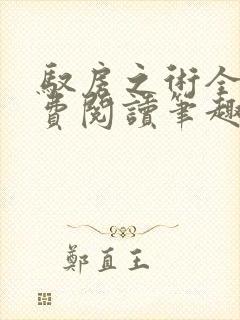 馭房之術全
費閱讀筆趣
鄭直王